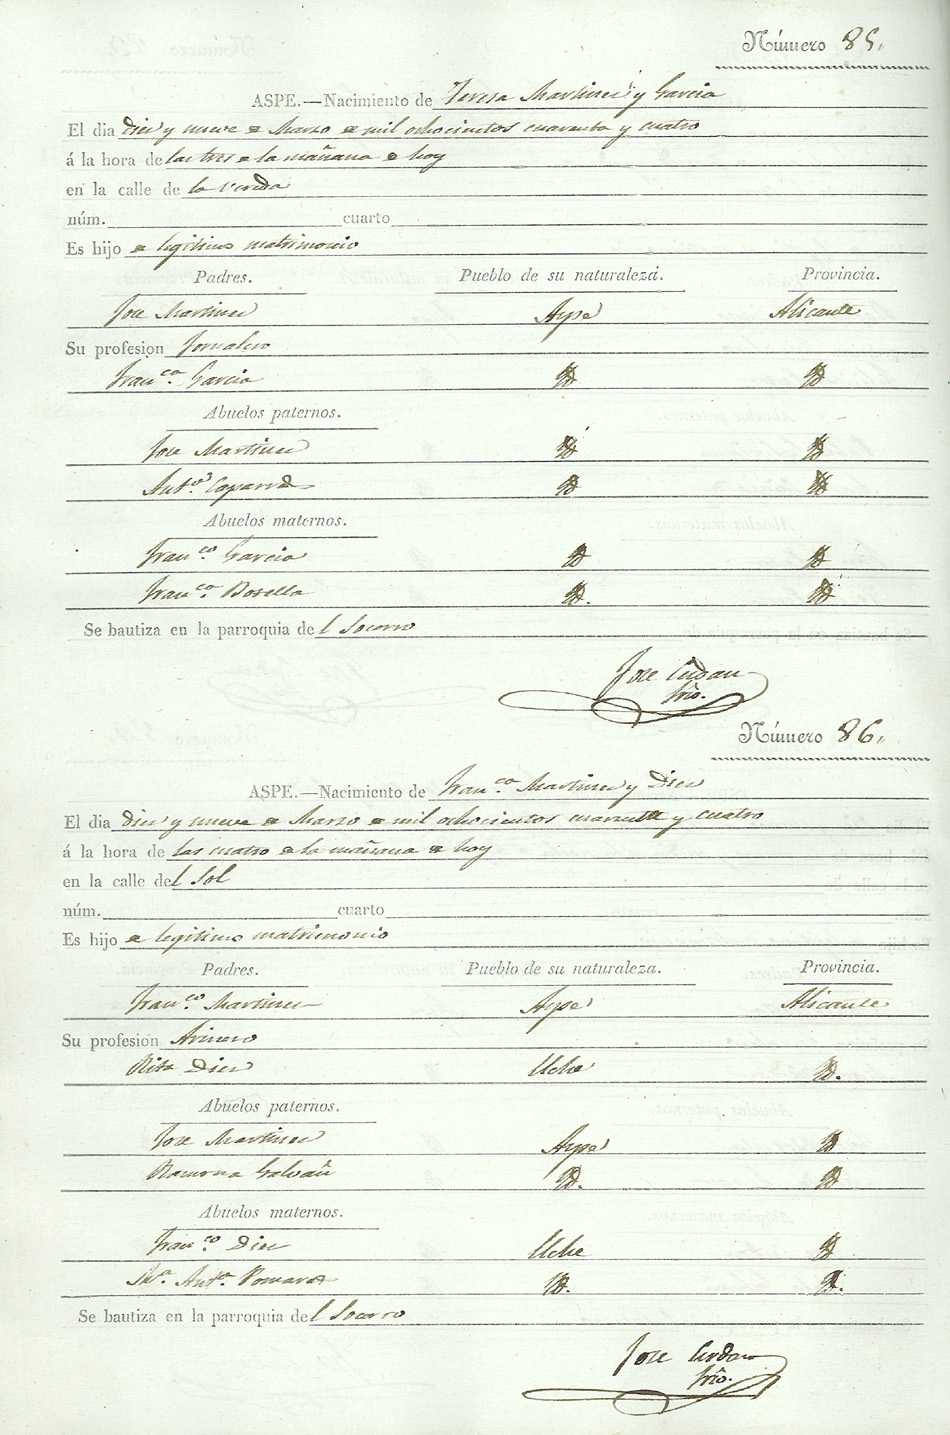 Número 85.
ASPE.—Nacimiento de Teresa Martinez y Garcia
El dia diez y nueve de Marzo de mil ochocientos cuarenta y cuatro
á la hora de las tres de la mañana de hoy
en la calle de la Vereda
núm. cuarto
Es hijo de legitimo matrimonio
Padres. Pueblo de su naturaleza. Provincia.
Jose Martinez Aspe Alicante
Su profesion Jornalero
Fran.ca Garcia Yd Yd
Abuelos paternos.
Jose Martinez Yd Yd
Ant.a Yd Yd
Abuelos maternos.
Fran.co Garcia Yd Yd
Fran.ca Botella Yd. Yd
Se bautiza en la parroquia del Socorro
Jose Cerdan
Srio.
Número 86.
ASPE.—Nacimiento de Fran.ca Martinez y Diez
El dia diez y nueve de Marzo de mil ochocientos cuarenta y cuatro
á la hora de las cuatro de la mañana de hoy
en la calle del Sol
núm. cuarto
Es hijo de legitimo matrimonio
Padres. Pueblo de su naturaleza. Provincia.
Fran.co Martinez Aspe Alicante
Su profesion Arriero
Rita Diez Elche Yd.
Abuelos paternos.
Jose Martinez Aspe Yd
Ramona Galvañ Yd. Yd
Abuelos maternos.
Fran.co Diez Elche Yd
M.a Ant.a Yd. Yd.
Se bautiza en la parroquia del Socorro
Jose Cerdan
Srio.